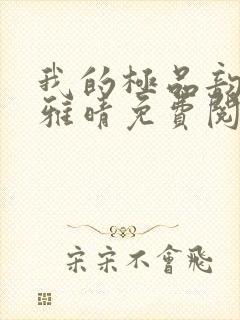 我的極品
雅晴免費閱
宋宋不會飛